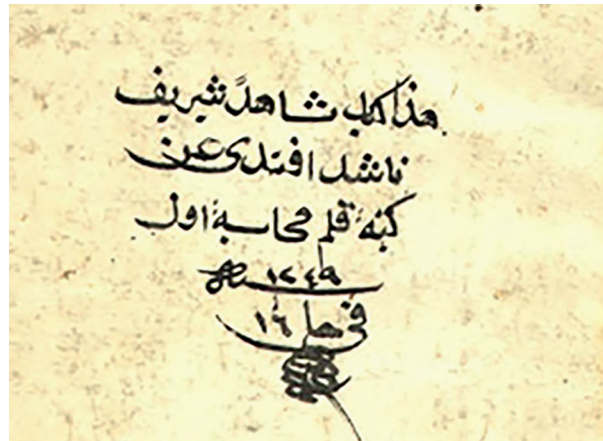 هذا كتاب شاهد شريف
ناشد افندى عن
كتبۀ قلم محاسبۀ اول
١٢٤٩
فى ١٦